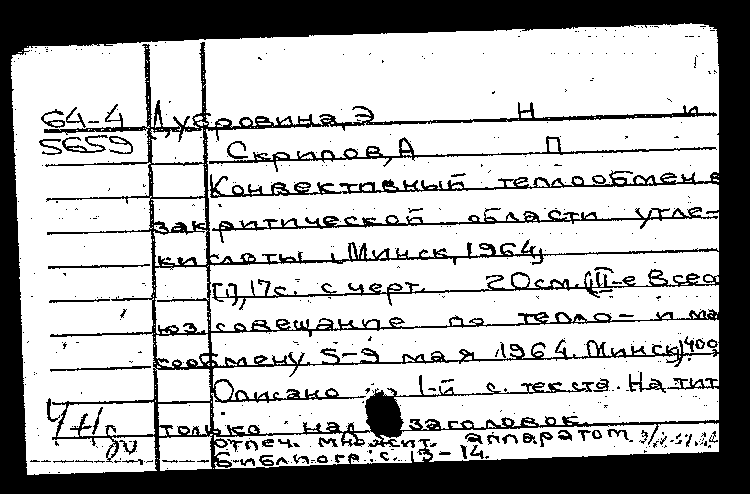 64-4 Дубровина, Э Н и
5659 Скрипов, А П
Конвективный теплообмен в
закритической области угле-
кислоты. Минск, 1964,
[1], 17с. с черт. 20см. (III-е Всесо
юз. совещание по тепло- и ма
сообмену. 5-9 мая 1964. Минск) 400
Описано по 1-й с. текста. На тит
только над заголовок.
отпеч. множит. аппаратом
Библиогр: с. 13-14.